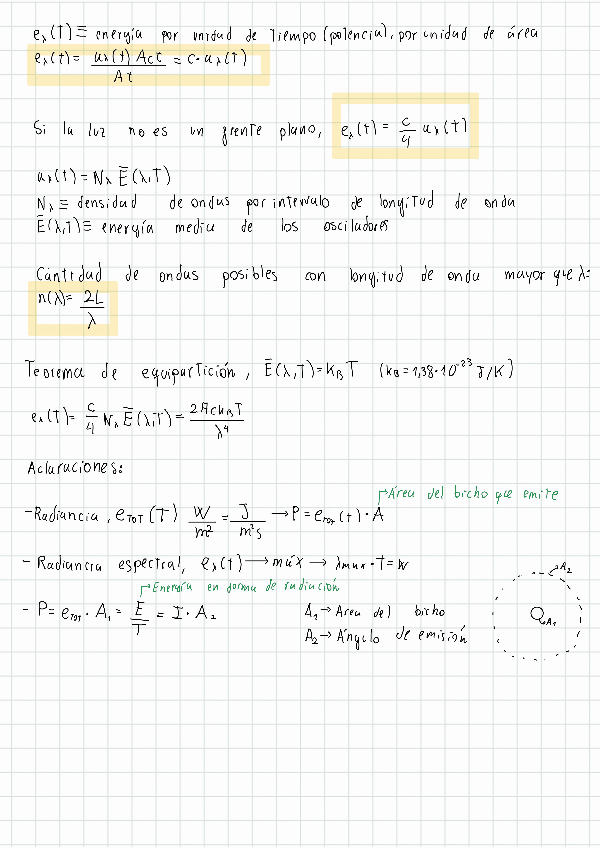 eλ(T) ≡ energía por unidad de tiempo (potencia), por unidad de área
eλ(t) = uλ(t) A c t / A t = c · uλ(T)
Si la luz no es un frente plano, eλ(T) = c/4 uλ(T)
uλ(T) = Nλ Ē(λ,T)
Nλ ≡ densidad de ondas por intervalo de longitud de onda
Ē(λ,T) ≡ energía media de los osciladores
Cantidad de ondas posibles con longitud de onda mayor que λ:
n(λ) = 2L / λ
Teorema de equipartición, Ē(λ,T) = kB T (kB = 1,38·10⁻²³ J/K)
eλ(T) = c/4 Nλ Ē(λ,T) = 2πckBT / λ⁴
Aclaraciones:
Área del bicho que emite
- Radiancia, eTOT(T) W/m² = J/m²s → P = eTOT(t) · A
- Radiancia espectral, eλ(t) → máx → λmax · T = w
Energía en forma de radiación
- P = eTOT · A₁ = E/T = I · A₂
A₁ → Área del bicho
A₂ → Ángulo de emisión
A₂
A₁